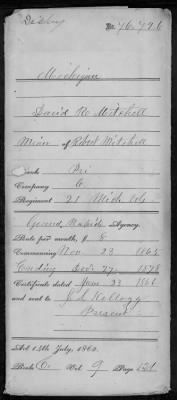 No. 76,796
Michigan
David R. Mitchell
Minor of Robert Mitchell
Rank, Pri
Company C.
Regiment 21 Mich Vols
Grand Rapids Agency.
Rate per month, $ 8
Commencing Nov 23 1865
Ending Dec. 27 1878
Certificate dated June 23 1866
and sent to J. S. Kellogg
Present
Act 14th July, 1862.
Book C. Vol. 9 Page